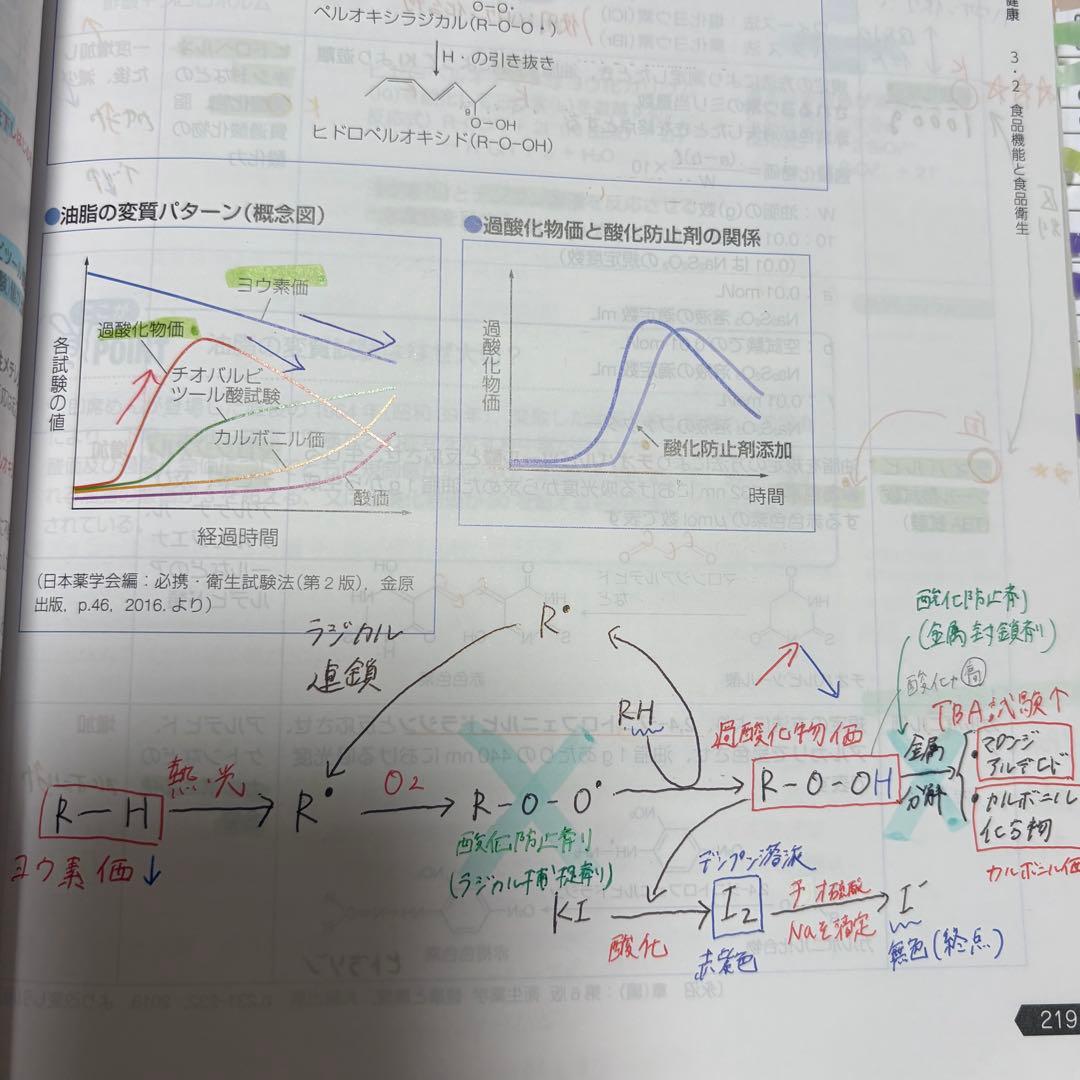 O-O・
ペルオキシラジカル(R-O-O・)
H・の引き抜き
9
O-OH
ヒドロペルオキシド(R-O-OH)
健康 3・2 食品機能と食品衛生
●油脂の変質パターン(概念図)
ヨウ素価
過酸化物価
各試験の値
チオバルビ
ツール酸試験
カルボニル価
酸価
経過時間
(日本薬学会編:必携・衛生試験法(第2版),金原
出版,p.46,2016.より)
●過酸化物価と酸化防止剤の関係
過酸化物価
酸化防止剤添加
時間
ラジカル
連鎖
R・
RH
酸化防止剤
(金属封鎖剤)
過酸化物価
TBA試験↑
R-H
熱・光
R・
O2
R-O-O・
R-O-OH
金属
分解
・マロンジ
アルデヒド
・カルボニル
化合物
カルボニル価
ヨウ素価↓
酸化防止剤
(ラジカル捕捉剤)
デンプン溶液
KI
酸化
I2
チオ硫酸
Naを滴定
I-
赤紫色
無色(終点)
219